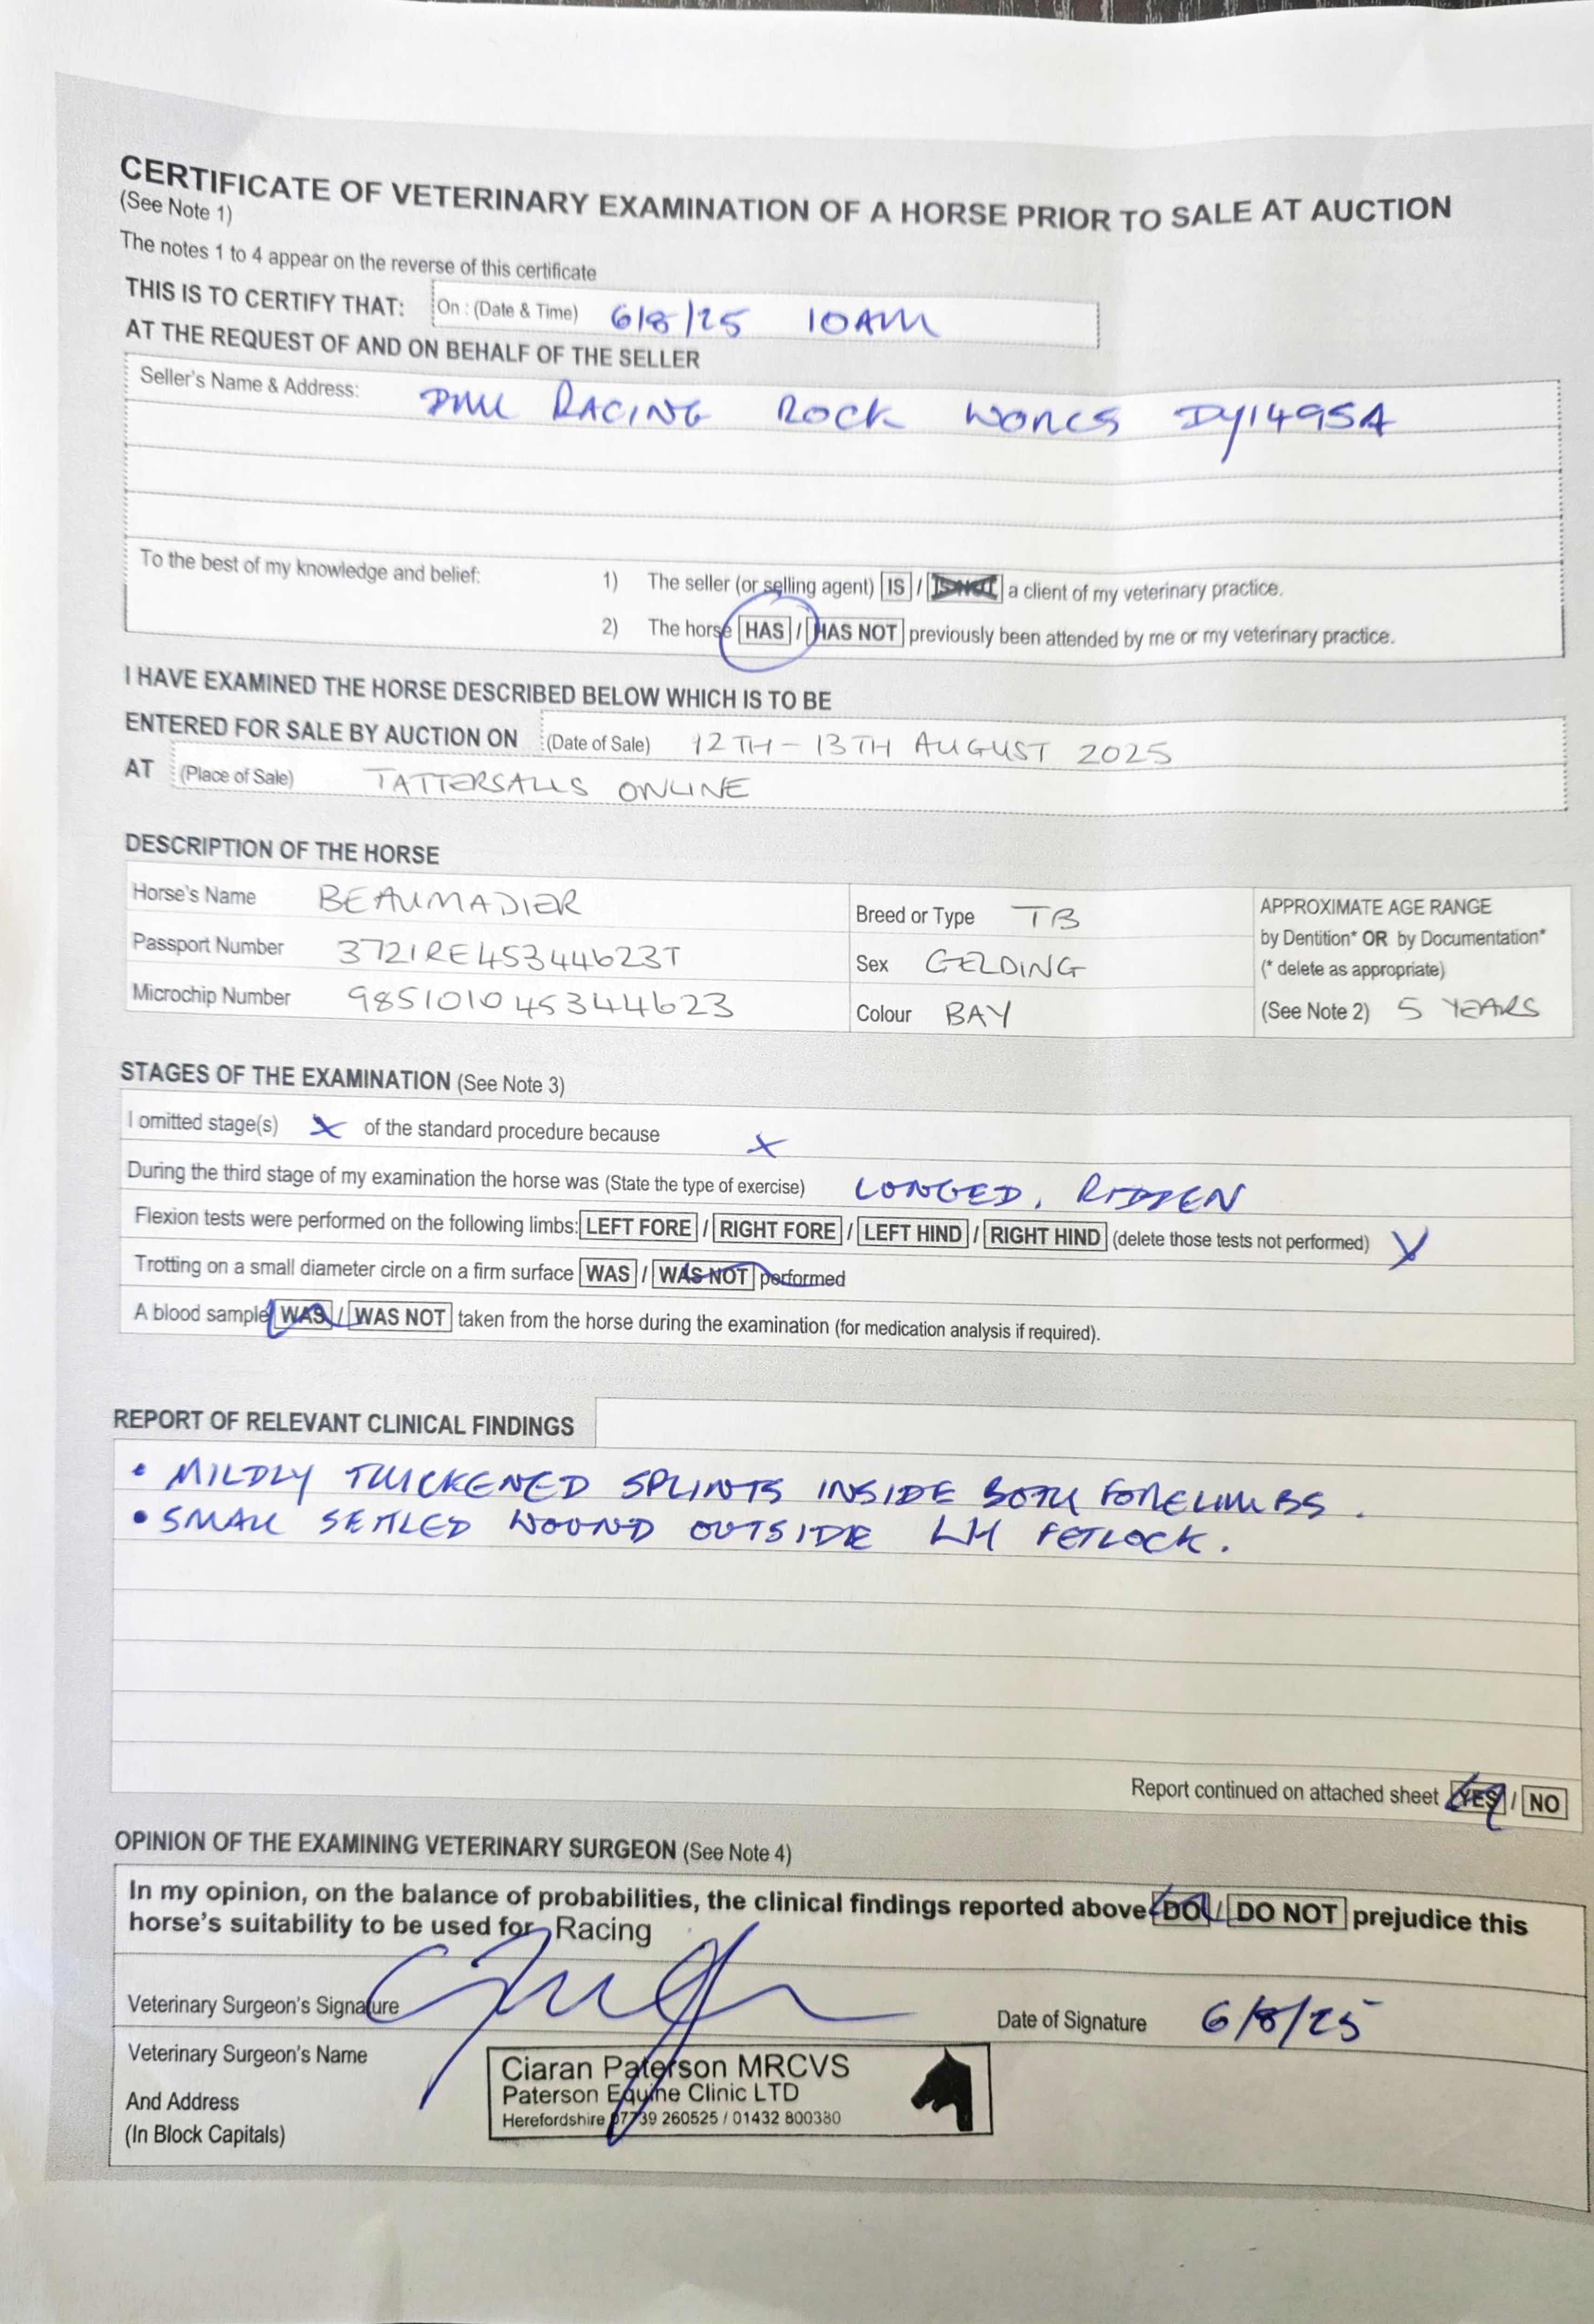 CERTIFICATE OF VETERINARY EXAMINATION OF A HORSE PRIOR TO SALE AT AUCTION
(See Note 1)
The notes 1 to 4 appear on the reverse of this certificate
THIS IS TO CERTIFY THAT: On : (Date & Time) 6/8/25 10AM
AT THE REQUEST OF AND ON BEHALF OF THE SELLER
Seller's Name & Address: RACING ROCK WORCS DY149SA
To the best of my knowledge and belief: 1) The seller (or selling agent) IS / IS NOT a client of my veterinary practice.
2) The horse HAS / HAS NOT previously been attended by me or my veterinary practice.
I HAVE EXAMINED THE HORSE DESCRIBED BELOW WHICH IS TO BE
ENTERED FOR SALE BY AUCTION ON (Date of Sale) 12TH - 13TH AUGUST 2025
AT (Place of Sale) TATTERSALLS ONLINE
DESCRIPTION OF THE HORSE
Horse's Name BEAUMADIER Breed or Type TB APPROXIMATE AGE RANGE
by Dentition* OR by Documentation*
Passport Number 372IRE45344623T Sex GELDING (* delete as appropriate)
Microchip Number 985101045344623 Colour BAY (See Note 2) 5 YEARS
STAGES OF THE EXAMINATION (See Note 3)
I omitted stage(s) X of the standard procedure because X
During the third stage of my examination the horse was (State the type of exercise) LONGED, RIDDEN
Flexion tests were performed on the following limbs: LEFT FORE / RIGHT FORE / LEFT HIND / RIGHT HIND (delete those tests not performed)
Trotting on a small diameter circle on a firm surface WAS / WAS NOT performed
A blood sample WAS / WAS NOT taken from the horse during the examination (for medication analysis if required).
REPORT OF RELEVANT CLINICAL FINDINGS
• MILDLY THICKENED SPLINTS INSIDE BOTH FORELIMBS.
• SMALL SETTLED WOUND OUTSIDE LH FETLOCK.
Report continued on attached sheet YES / NO
OPINION OF THE EXAMINING VETERINARY SURGEON (See Note 4)
In my opinion, on the balance of probabilities, the clinical findings reported above DO / DO NOT prejudice this
horse's suitability to be used for Racing
Veterinary Surgeon's Signature Date of Signature 6/8/25
Veterinary Surgeon's Name
And Address
(In Block Capitals)
Ciaran Paterson MRCVS
Paterson Equine Clinic LTD
Herefordshire 07739 260525 / 01432 800380